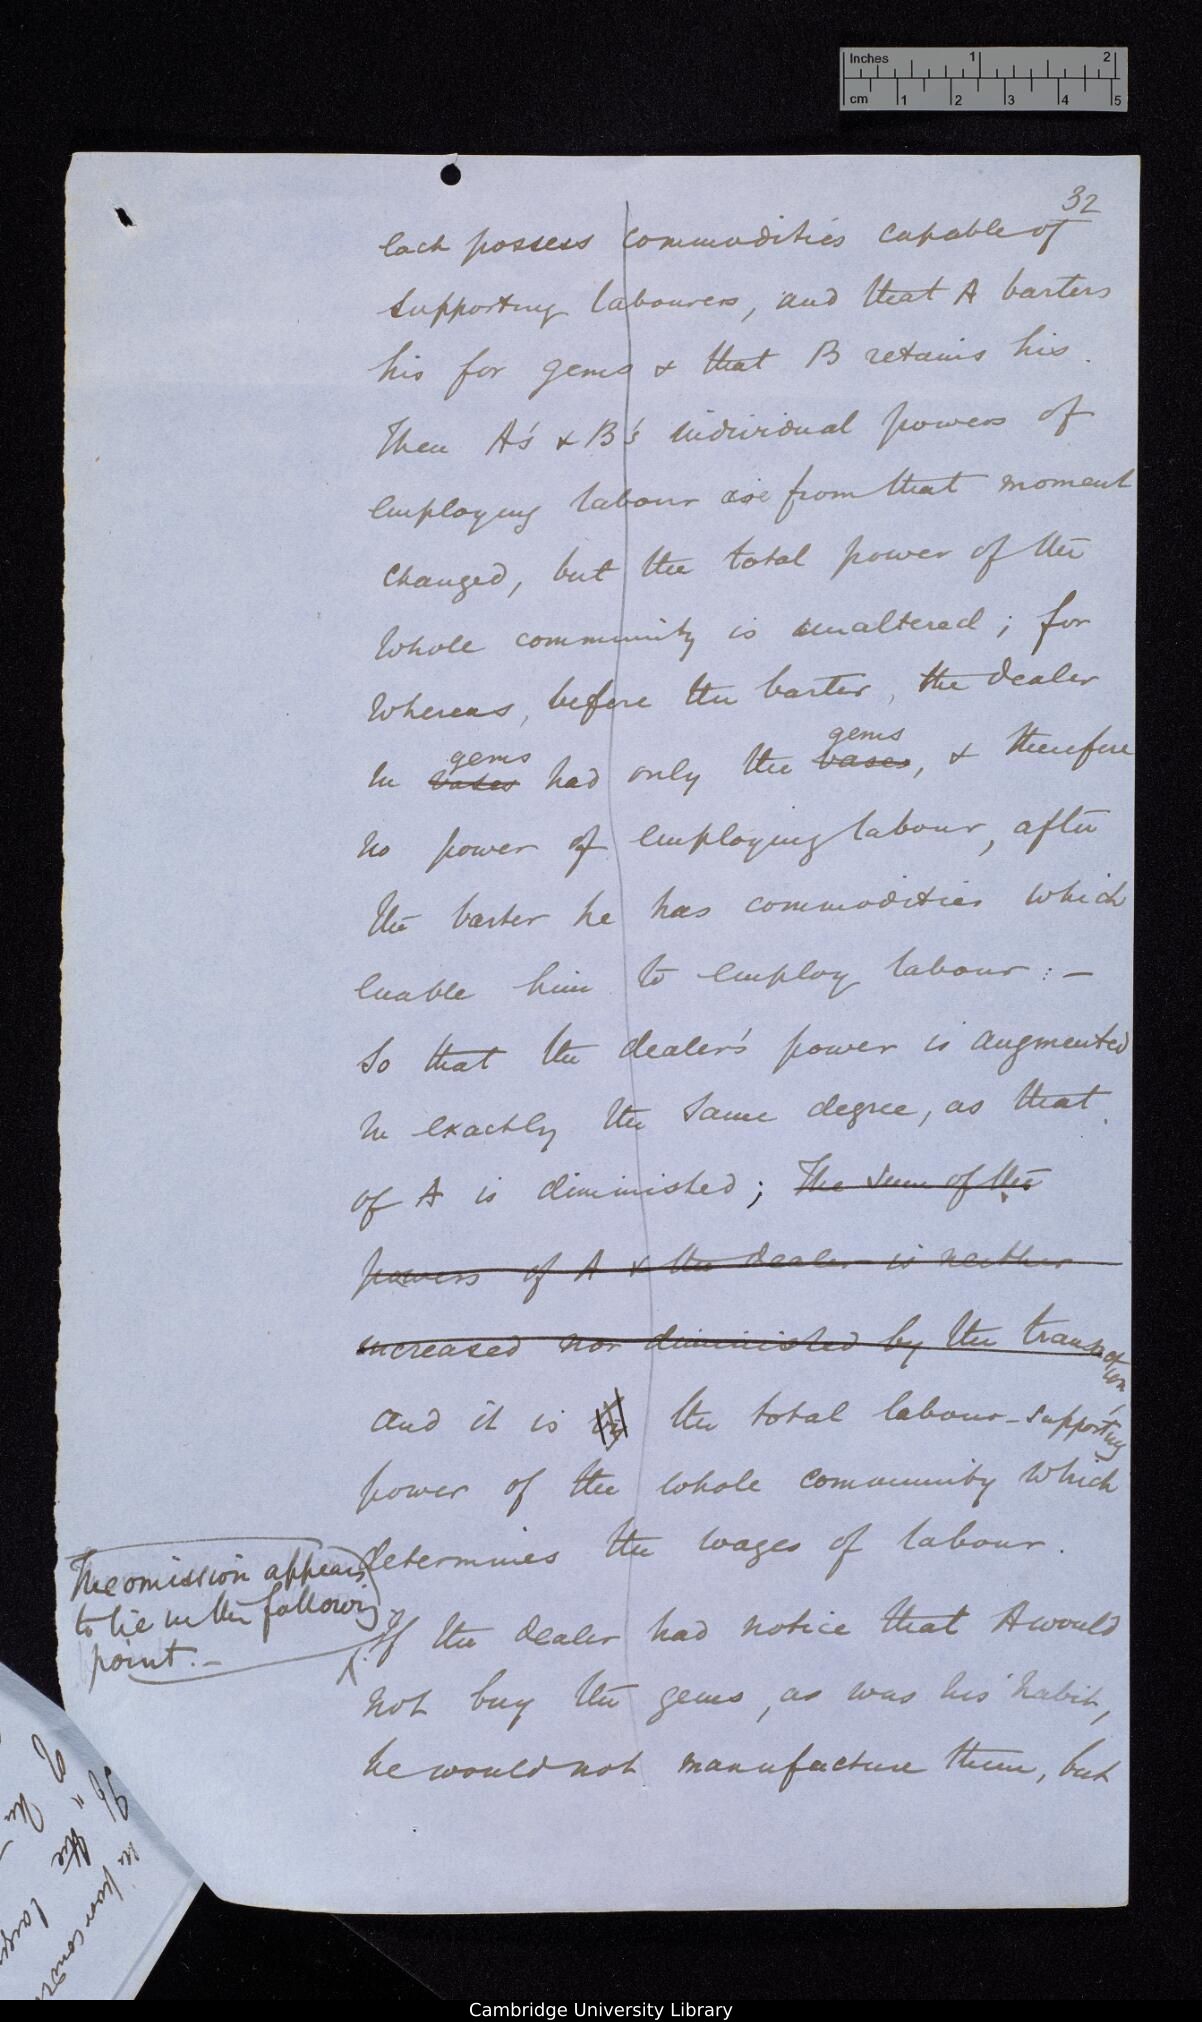 Inches 1 2
cm 1 2 3 4 5
32
each possess commodities capable of
supporting labourers, and that A barters
his for gems & that B retains his.
Then A's & B's individual powers of
employing labour are from that moment
changed, but the total power of the
whole community is unaltered; for
whereas, before the barter, the dealer
gems gems
in vases had only the vases, & therefore
no power of employing labour, after
the barter he has commodities which
enable him to employ labour :—
so that the dealer's power is augmented
in exactly the same degree, as that
of A is diminished; The sum of the
powers of A & the dealer is neither
increased nor diminished by the transaction
and it is the total labour-supporting
power of the whole community which
determines the wages of labour.
The omission appears
to lie in the following
point.—
If the dealer had notice that A would
not buy the gems, as was his habit,
he would not manufacture them, but
of the
" the large
in poor
Cambridge University Library